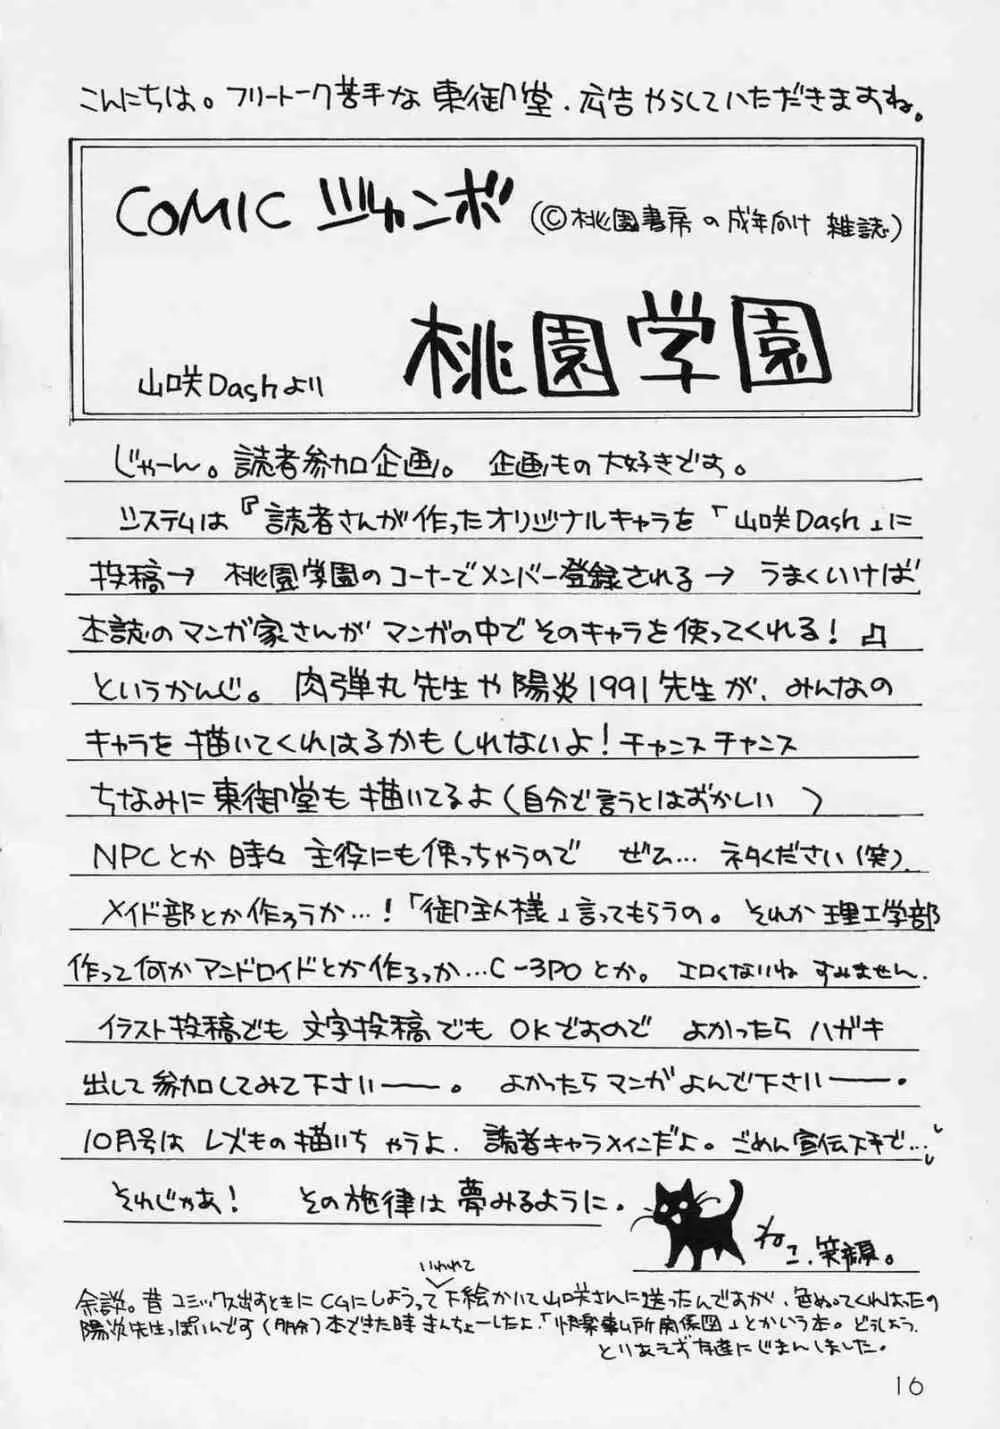 こんにちは。フリートーク苦手な東御堂、広告やらしていただきますね。
COMIC ジャンボ (©桃園書房の成年向け 雑誌)
桃園学園
山咲Dashより
じゃーん。読者参加企画。 企画もの大好きです。
システムは『読者さんが作ったオリジナルキャラを「山咲Dash」に
投稿→ 桃園学園のコーナーでメンバー登録される→ うまくいけば
本誌のマンガ家さんがマンガの中でそのキャラを使ってくれる!』
というかんじ。 肉弾丸先生や陽炎1991先生が、みんなの
キャラを描いてくれはるかもしれないよ!チャンスチャンス
ちなみに東御堂も描いてるよ(自分で言うとはずかしい )
NPCとか時々主役にも使っちゃうので ぜひ… ネタください(笑).
メイド部とか作ろうか…!「御主人様」言ってもらうの。それか理工学部
作って何かアンドロイドとか作ろっか…C-3POとか。エロくないね すみません.
イラスト投稿でも文字投稿でもOKですので よかったら ハガキ
出して参加してみて下さいーー。 よかったらマンガよんで下さいーー.
10月号は レズもの描いちゃうよ. 読者キャラメインだよ。ごめん宣伝下手で…
それじゃあ! その旋律は夢みるように.
ねこ、笑顔。
いわれて
余談。昔コミックス出すときにCGにしようって下絵かいて山咲さんに送ったんですが、色ぬってくれはったの
陽炎先生っぽいんです(多分)本できた時きんちょーしたよ.「快楽事ム所関係図」とかいう本。どうしよう.
とりあえず友達にじまんしました.
16